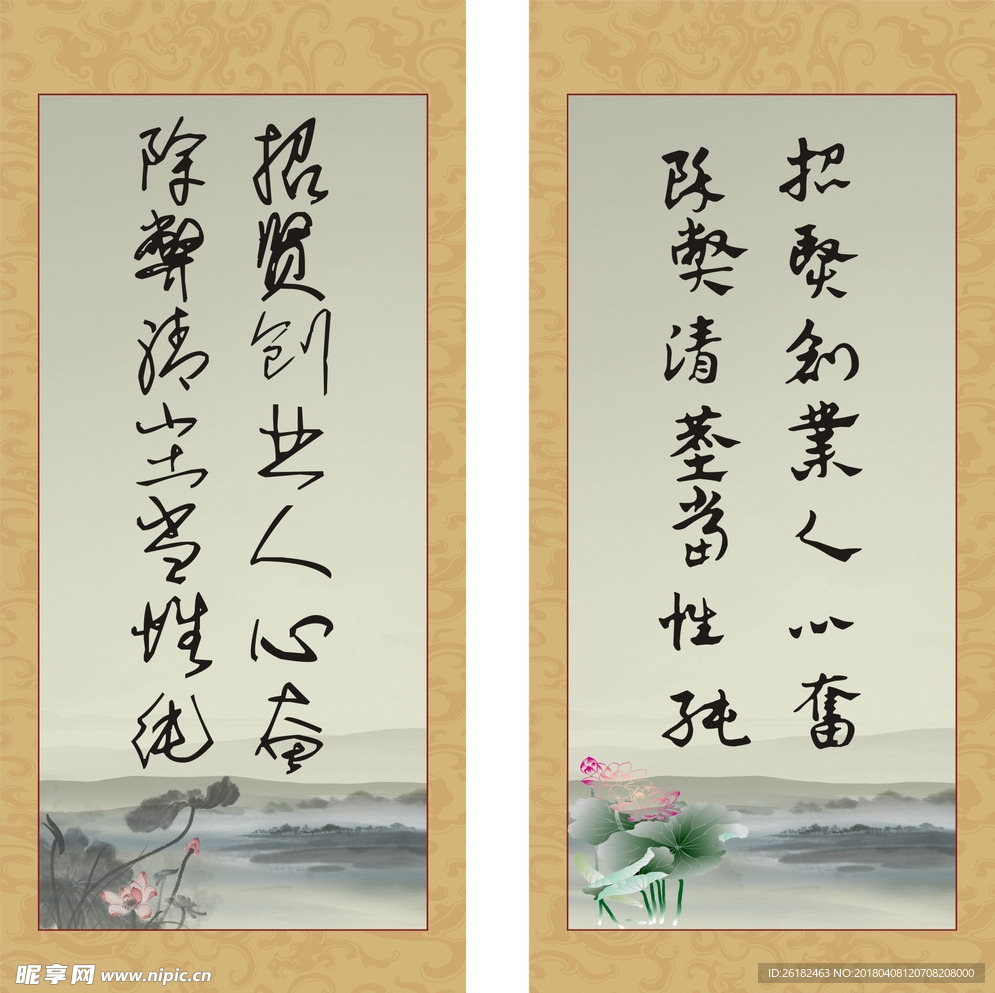 招贤创业人心奋
除弊清尘当性纯
招賢創業人心奮
除弊清塵當性純
昵享网 www.nipic.cn
ID:26182463 NO:20180408120708208000